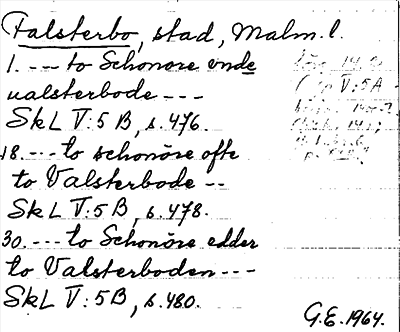 Falsterbo, stad, Malm. l.
1. --- to Schonøre vnde
ualsterbode ---
SkL V:5 B, s. 476.
18. --- to schonöre ofte
to Valsterbode --
SkL V:5 B, s. 478.
30. --- to Schonöre edder
to Valsterboden ---
SkL V:5 B, s. 480.
G.E. 1964.
V:5A